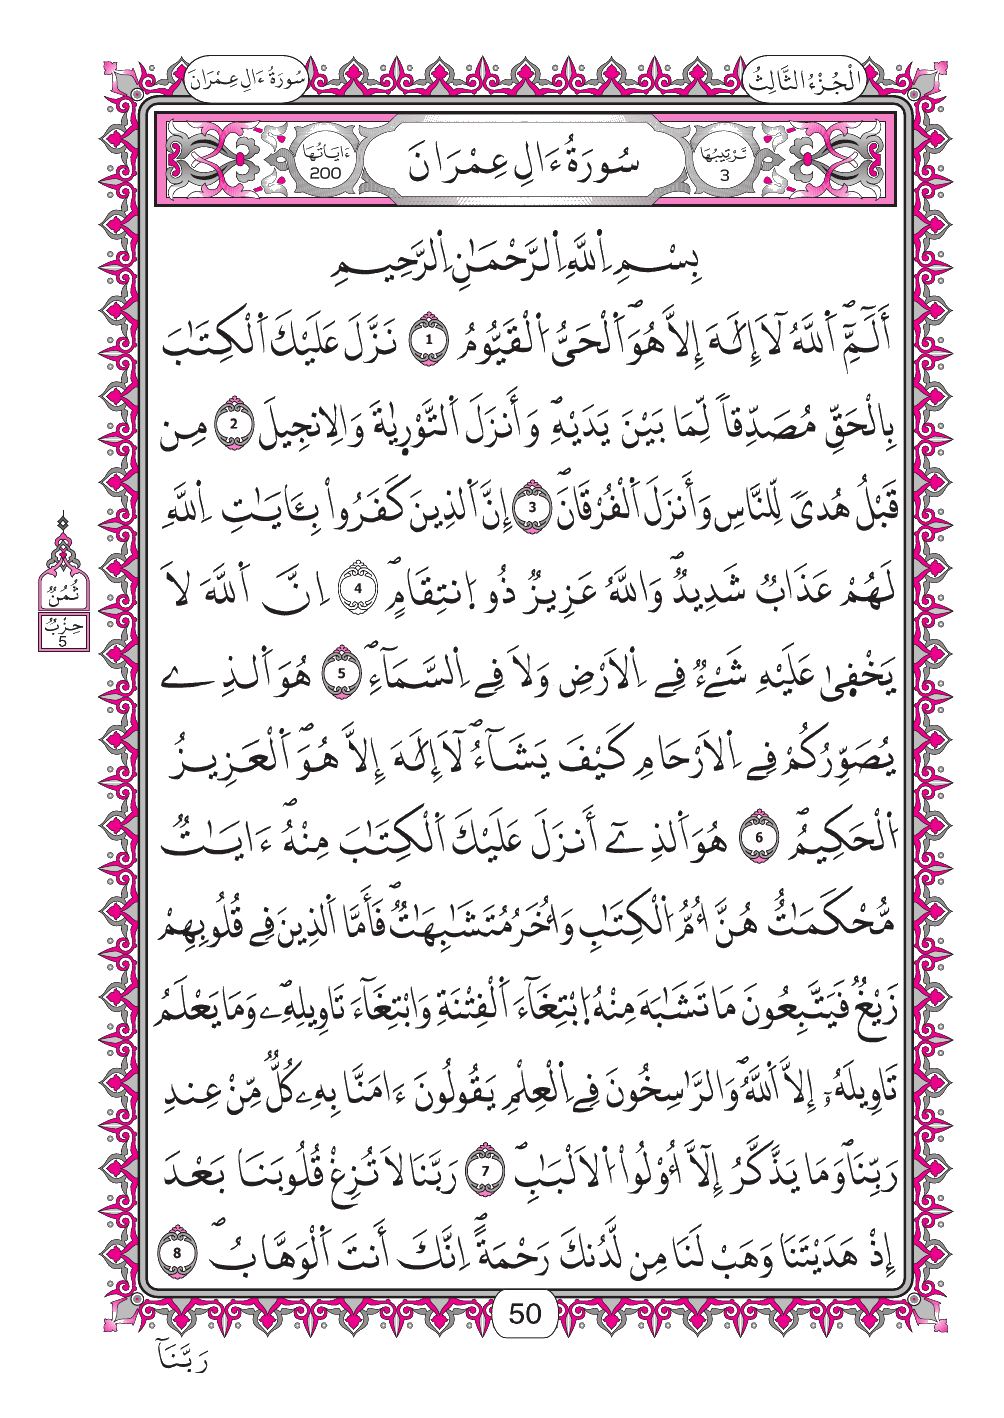 سُورَةُ ءَالِ عِمْرَانَ
الْجُزْءُ الثَّالِثُ
تَرْتِيبُهَا 3
سُورَةُ ءَالِ عِمْرَانَ
ءَايَاتُهَا 200
بِسْمِ اِ۬للَّهِ اِ۬لرَّحْمَٰنِ اِ۬لرَّحِيمِ
أَلَٓمِّٓۖ اَ۬للَّهُ لَآ إِلَٰهَ إِلَّا هُوَۖ اَ۬لْحَىُّ اُ۬لْقَيُّومُ 1 نَزَّلَ عَلَيْكَ اَ۬لْكِتَٰبَ
بِالْحَقِّ مُصَدِّقاٗ لِّمَا بَيْنَ يَدَيْهِۖ وَأَنزَلَ اَ۬لتَّوْر۪يٰةَ وَالِانجِيلَ 2 مِن
قَبْلُ هُديٗ لِّلنَّاسِ وَأَنزَلَ اَ۬لْفُرْقَانَۖ 3 إِنَّ اَ۬لذِينَ كَفَرُواْ بِـَٔايَٰتِ اِ۬للَّهِ
لَهُمْ عَذَابٞ شَدِيدٞۖ وَاللَّهُ عَزِيزٞ ذُو اُ۪نتِقَامٍۖ 4 اِنَّ اَ۬للَّهَ لَا
يَخْف۪يٰ عَلَيْهِ شَےْءٞ فِے اِ۬لَارْضِ وَلَا فِے اِ۬لسَّمَآءِۖ 5 هُوَ اَ۬لذِے
يُصَوِّرُكُمْ فِے اِ۬لَارْحَامِ كَيْفَ يَشَآءُۖ لَآ إِلَٰهَ إِلَّا هُوَۖ اَ۬لْعَزِيزُ
اُ۬لْحَكِيمُۖ 6 هُوَ اَ۬لذِےٓ أَنزَلَ عَلَيْكَ اَ۬لْكِتَٰبَ مِنْهُۖ ءَايَٰتٞ
مُّحْكَمَٰتٌ هُنَّ أُمُّ اُ۬لْكِتَٰبِ وَأُخَرُ مُتَشَٰبِهَٰتٞۖ فَأَمَّا اَ۬لذِينَ فِے قُلُوبِهِمْ
زَيْغٞ فَيَتَّبِعُونَ مَا تَشَٰبَهَ مِنْهُ اُ۪بْتِغَآءَ اَ۬لْفِتْنَةِ وَابْتِغَآءَ تَاوِيلِهِۦۖ وَمَا يَعْلَمُ
تَاوِيلَهُۥٓ إِلَّا اَ۬للَّهُۖ وَالرَّٰسِخُونَ فِے اِ۬لْعِلْمِ يَقُولُونَ ءَامَنَّا بِهِۦ كُلّٞ مِّنْ عِندِ
رَبِّنَاۖ وَمَا يَذَّكَّرُ إِلَّآ أُوْلُواْ اُ۬لَالْبَٰبِۖ 7 رَبَّنَا لَا تُزِغْ قُلُوبَنَا بَعْدَ
إِذْ هَدَيْتَنَا وَهَبْ لَنَا مِن لَّدُنكَ رَحْمَةًۖ اِنَّكَ أَنتَ اَ۬لْوَهَّابُۖ 8
ثُمُنٌ
حِزْبٌ
5
50
رَبَّنَآ